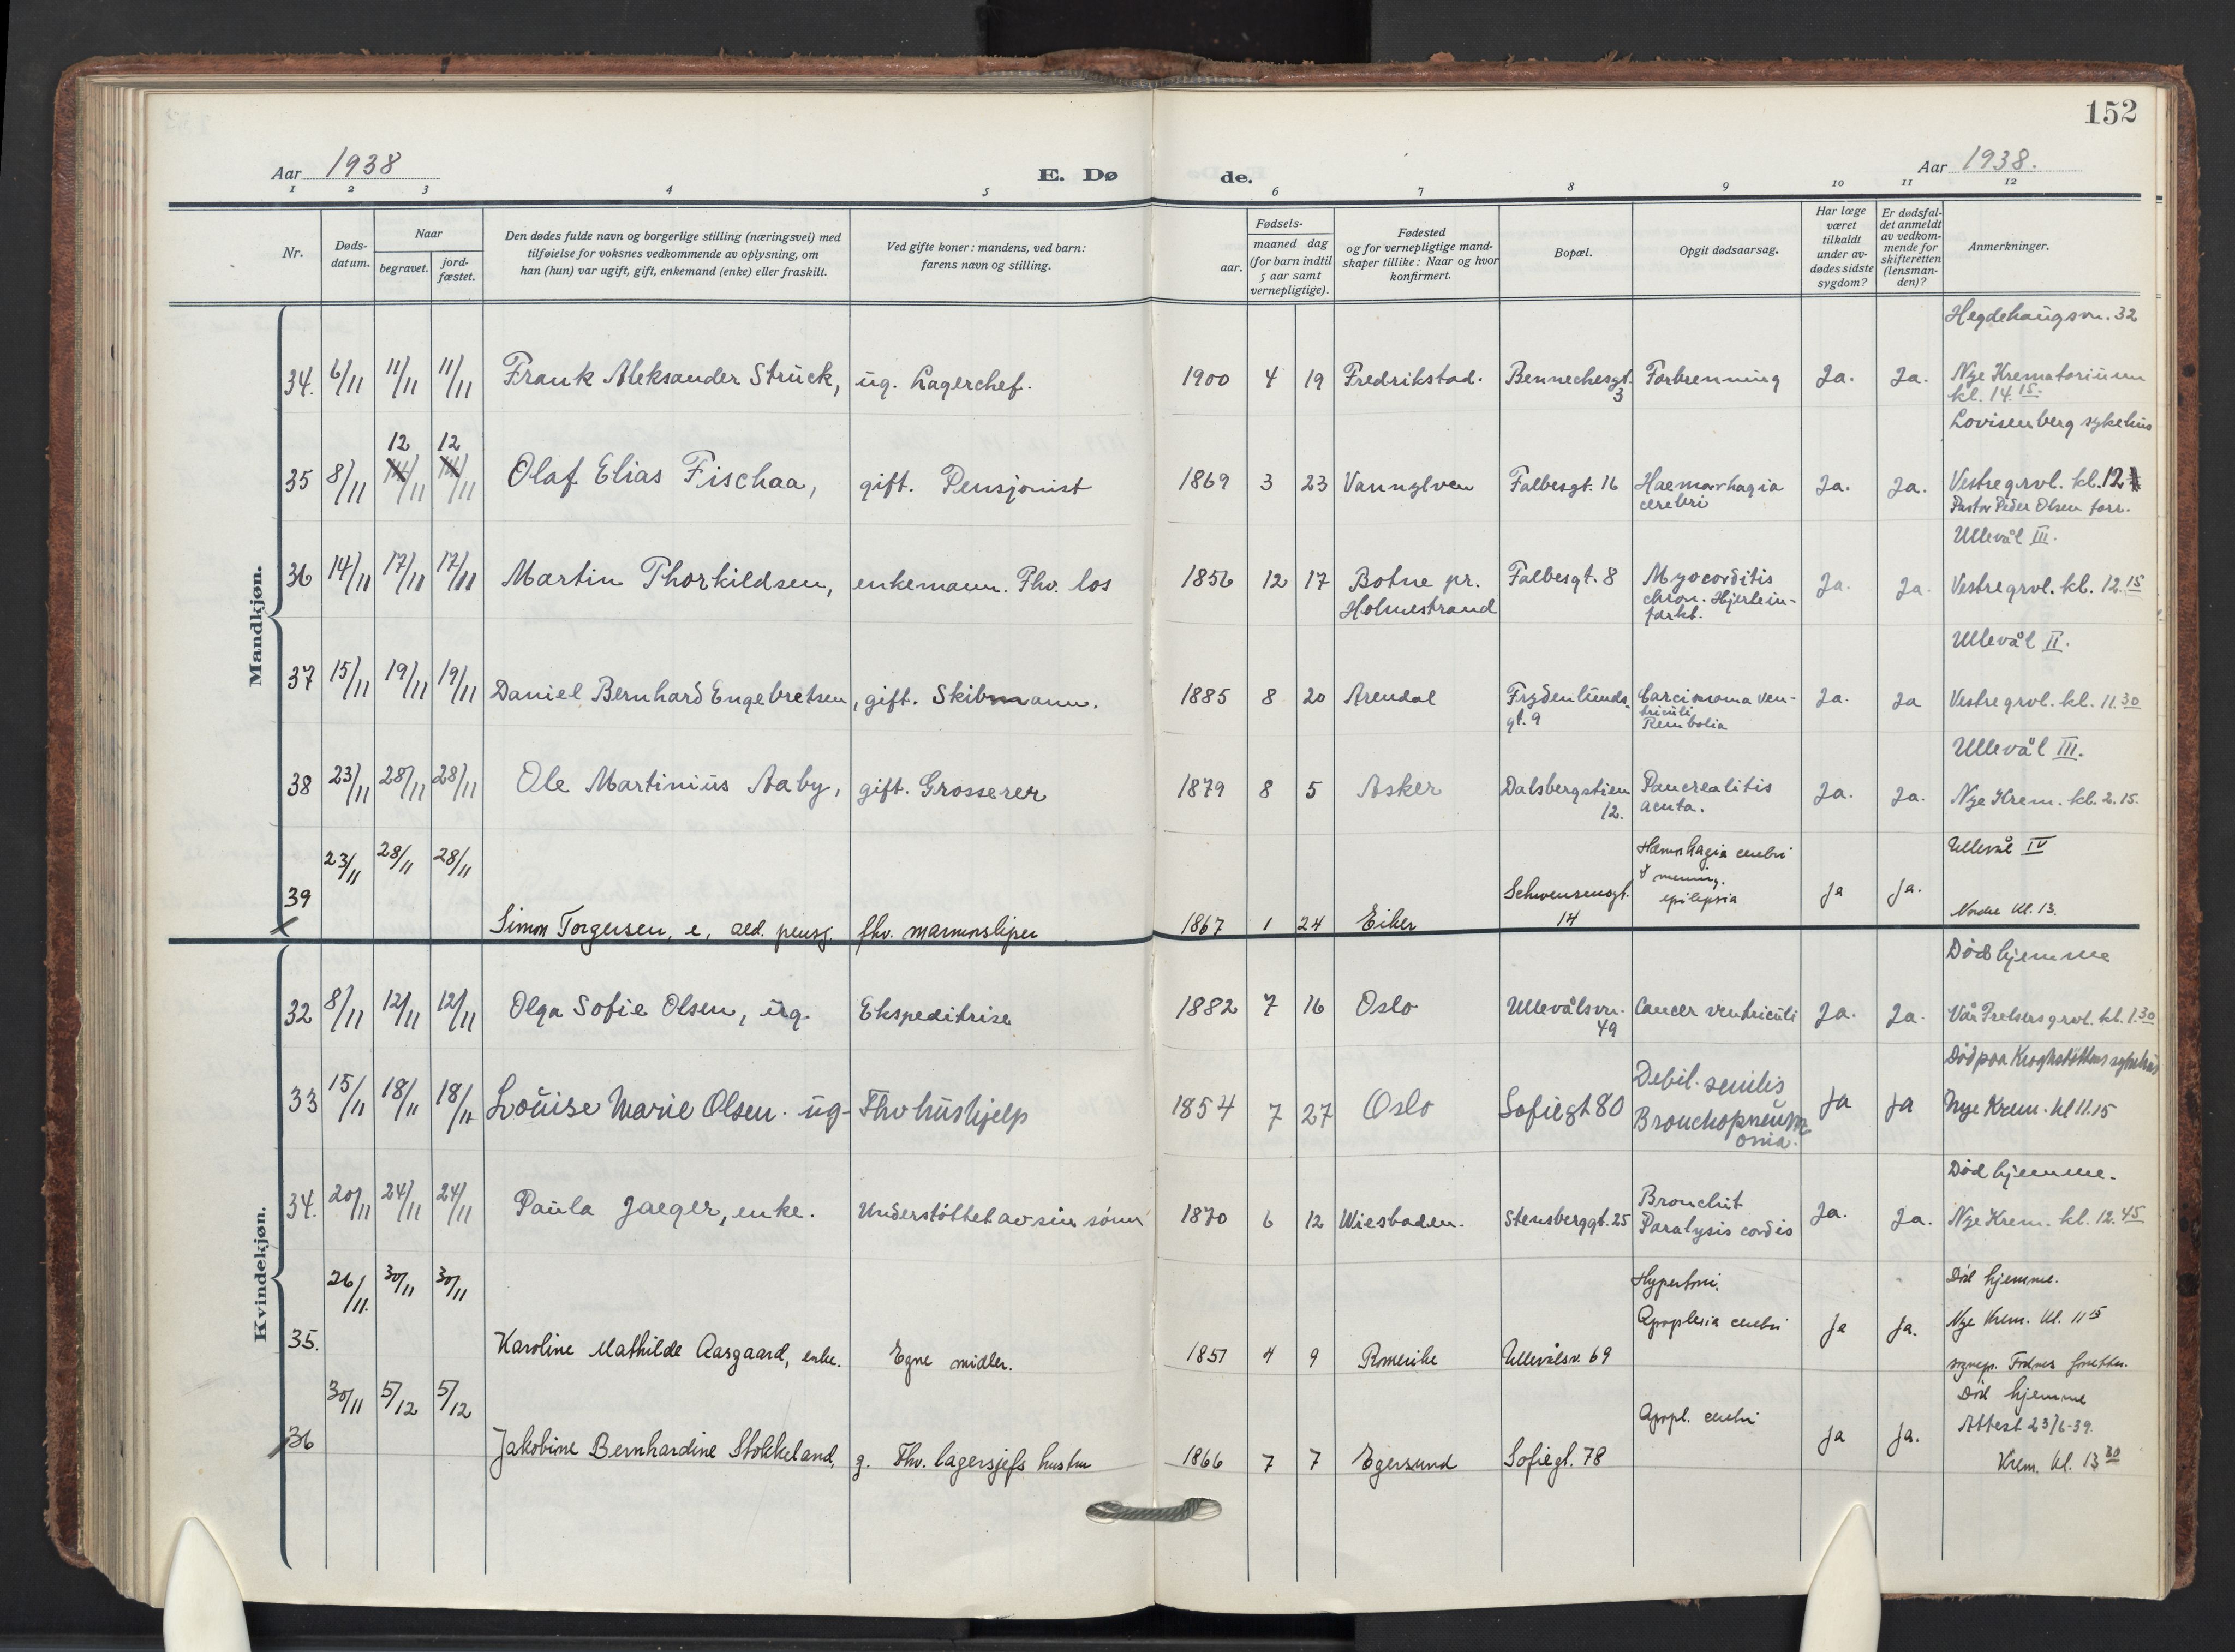 152
Aar 1938 E. Dø de. Aar 1938.
1 2 3 4 5 6 7 8 9 10 11 12
Nr.
Døds-
datum.
Naar
begravet.
jord-
fæstet.
Den dødes fulde navn og borgerlige stilling (næringsvei) med
tilføielse for voksnes vedkommende av oplysning, om
han (hun) var ugift, gift, enkemand (enke) eller fraskilt.
Ved gifte koner: mandens, ved barn:
farens navn og stilling.
Fødsels-
aar.
maaned dag
(for barn indtil
5 aar samt
vernepligtige).
Fødested
og for vernepligtige mand-
skaper tillike: Naar og hvor
konfirmert.
Bopæl.
Opgit dødsaarsag.
Har læge
været
tilkaldt
under av-
dødes sidste
sygdom?
Er dødsfal-
det anmeldt
av vedkom-
mende for
skifteretten
(lensman-
den)?
Anmerkninger.
Mandkjøn.
Hegdehaugsvn. 32
34. 6/11 11/11 11/11 Frank Aleksander Struck, ug. Lagerchef. 1900 4 19 Fredrikstad. Bennechesgt. Forbrenning Ja. Ja. Nye Krematorium
3 kl. 14.15.
Lovisenberg sykehus
12 12
35 8/11 14/11 14/11 Olaf Elias Fischaa, gift. Pensjonist 1869 3 23 Vannylven Falbesgt. 16 Haemorrhagia Ja. Ja. Vestre grvl. kl. 12
cerebri Pastor Peder Olsen forr.
Ullevål III.
36 14/11 17/11 17/11 Martin Thorkildsen, enkemann. Fhv. los 1856 12 17 Botne pr. Falbesgt. 8 Myocorditis Ja. Ja. Vestre grvl. kl. 12.15
Holmestrand chron. Hjertein-
farkt.
Ullevål II.
37 15/11 19/11 19/11 Daniel Bernhard Engebretsen, gift. Skibmann. 1885 8 20 Arendal Frydenlunds- Carcinoma ven- Ja. Ja Vestre grvl. kl. 11.30
gt. 9 triculi
Ullevål III.
38 23/11 28/11 28/11 Ole Martinius Aaby, gift. Grosserer 1879 8 5 Asker Dalsbergstien Pancrealitis Ja. Ja. Nye Krem. kl. 2.15.
12. acuta.
23/11 28/11 28/11 Hæmorhagia cerebri Ullevål IV
39 Schwensensgt. epilepsia Ja Ja.
Simon Torgersen, e, ald. pensj. fhv. marmorsliper 1867 1 24 Eiker 14 Nordre kl. 13.
Kvindekjøn.
Død hjemme
32 8/11 12/11 12/11 Olga Sofie Olsen, ug. Ekspeditrise 1882 7 16 Oslo Ullevålsvn. Cancer ventriculi Ja. Ja. Vår Frelsers grvl. kl. 1.30
49
Død paa Kroghstøttens sykehus
33 15/11 18/11 18/11 Louise Marie Olsen. ug- Fhv hushjelp 1854 7 27 Oslo Sofiegt 80 Debil. senilis Ja Ja Nye Krem. kl 11.15
Bronchopneum-
onia.
Død hjemme.
34. 20/11 24/11 24/11 Paula Jaeger, enke. Understöttet av sin sönn 1870 6 12 Wiesbaden. Stensberggt. 25 Bronchit Ja. Ja. Nye Krem. kl. 12.45
Paralysis cordis
26/11. 30/11 30/11 Hypertoni. Død hjemme.
Apoplexia cerebri Ja Ja. Nye Krem. kl. 11 15
35. Karoline Mathilde Aasgaard, enke. Egne midler. 1851 4 9 Romerike Ullevålsv. 69 sognepr.
30/11 5/12 5/12 Død hjemme
Apopl. cerebri Attest 23/6-39.
36 Jakobine Bernhardine Stokkeland, g. Fhv. lagersjefs hustru 1866 7 7 Egersund Sofiegt. 78 Ja Ja. Krem. kl. 13 30